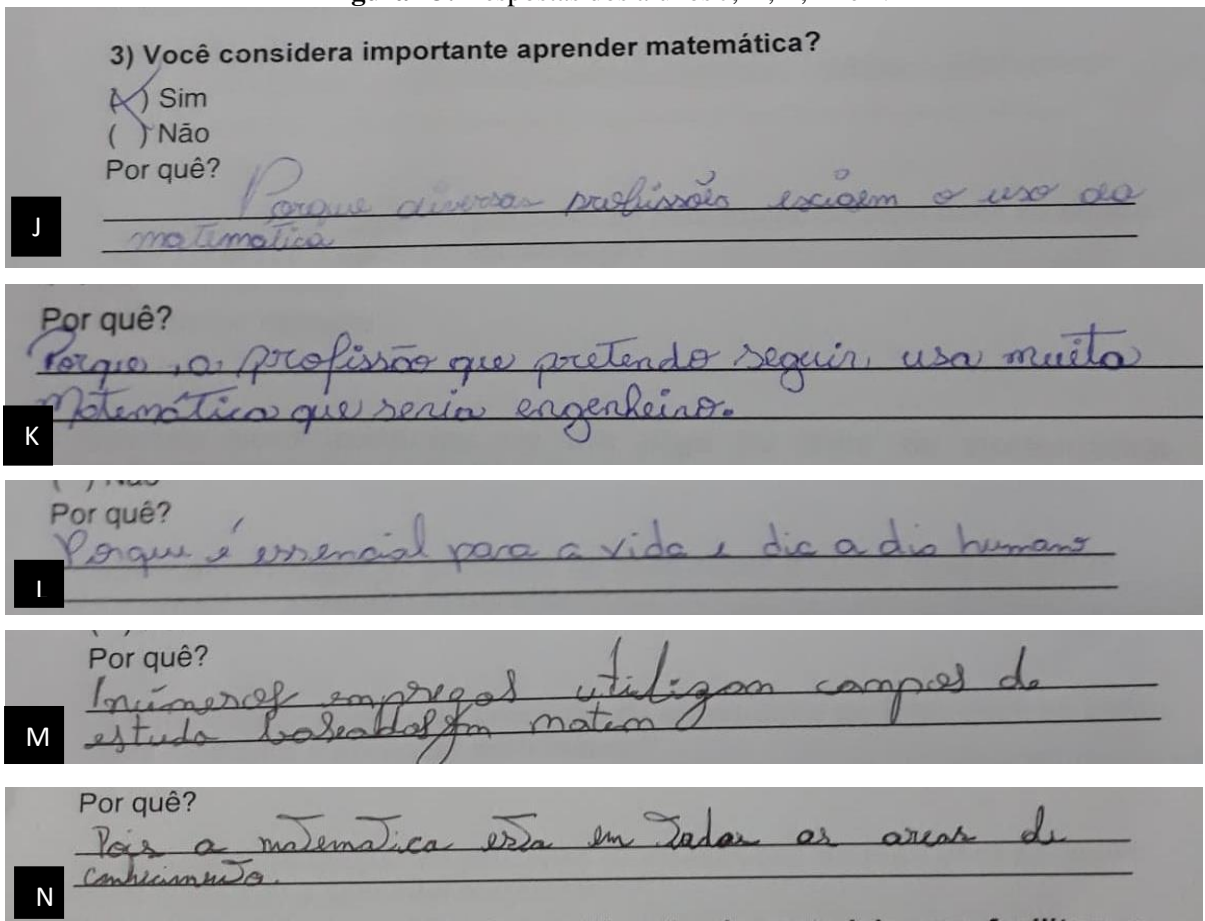 3) Você considera importante aprender matemática?
(X) Sim
( ) Não
Por quê?
Porque diversas profissões exigem o uso da
matemática
J
Por quê?
Porque, a profissão que pretendo seguir, usa muita
Matemática que seria engenheiro.
K
Por quê?
Porque é essencial para a vida e dia a dia humano
I
Por quê?
Inúmeros empregos utilizam campos de
estudo baseados em matem
M
Por quê?
Pois a matematica esta em todas as areas de
conhecimento.
N